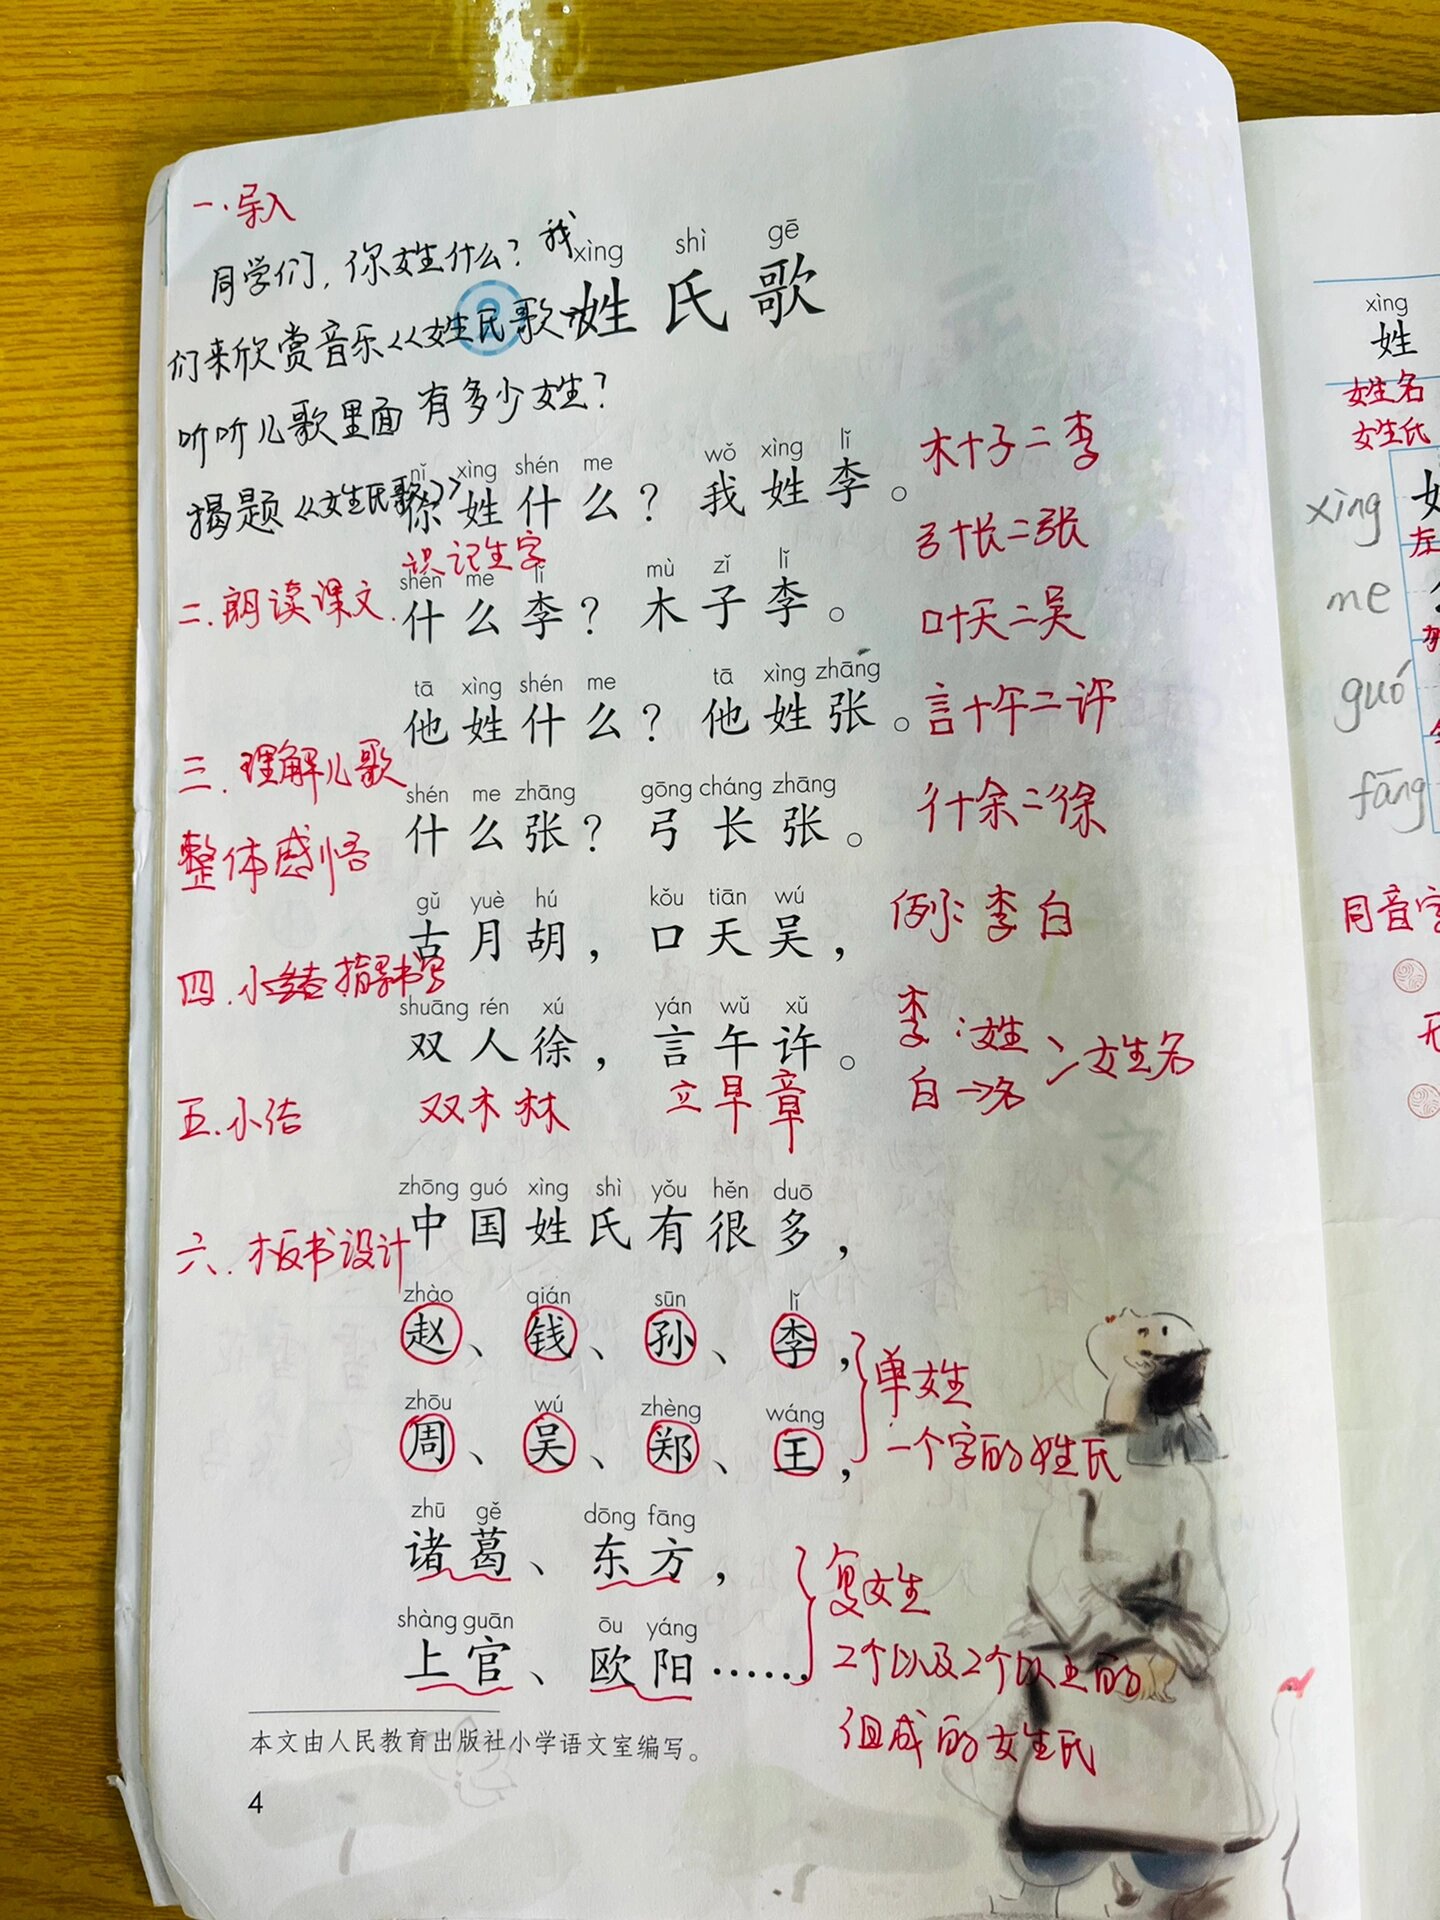 一.导入
同学们，你姓什么？我
们来欣赏音乐《姓氏歌》
听听儿歌里面有多少姓？
揭题《姓氏歌》
xìng shì gē
2 姓氏歌
nǐ xìng shén me wǒ xìng lǐ
你姓什么？我姓李。
木+子=李
识记生字
二.朗读课文.
shén me lǐ mù zǐ lǐ
什么李？木子李。
弓+长=张
口+天=吴
tā xìng shén me tā xìng zhāng
他姓什么？他姓张。
言+午=许
三.理解儿歌
整体感悟
shén me zhāng gōng cháng zhāng
什么张？弓长张。
彳+余=徐
gǔ yuè hú kǒu tiān wú
古月胡，口天吴，
例：李白
四.小结指导书写
shuāng rén xú yán wǔ xǔ
双人徐，言午许。
李：姓
白→名
>姓名
双木林 立早章
五.小结
zhōng guó xìng shì yǒu hěn duō
中国姓氏有很多，
六.板书设计
zhào qián sūn lǐ
赵、钱、孙、李，
zhōu wú zhèng wáng
周、吴、郑、王，
单姓
一个字的姓氏
zhū gě dōng fāng
诸葛、东方，
shàng guān ōu yáng
上官、欧阳……
复姓
2个以及2个以上的
组成的姓氏
本文由人民教育出版社小学语文室编写。
4
xìng
姓
姓名
姓氏
xìng
me
guó
fāng
同音字